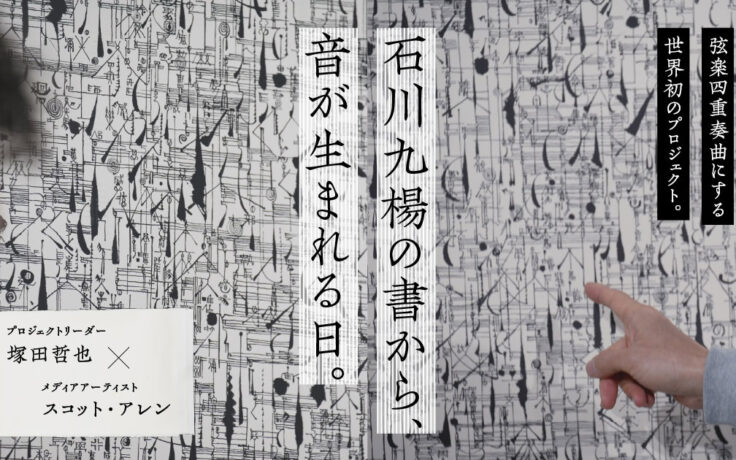 弦楽四重奏曲にする
世界初のプロジェクト。
石川九楊の書から、
音が生まれる日。
プロジェクトリーダー
塚田哲也 ×
メディアアーティスト
スコット・アレン